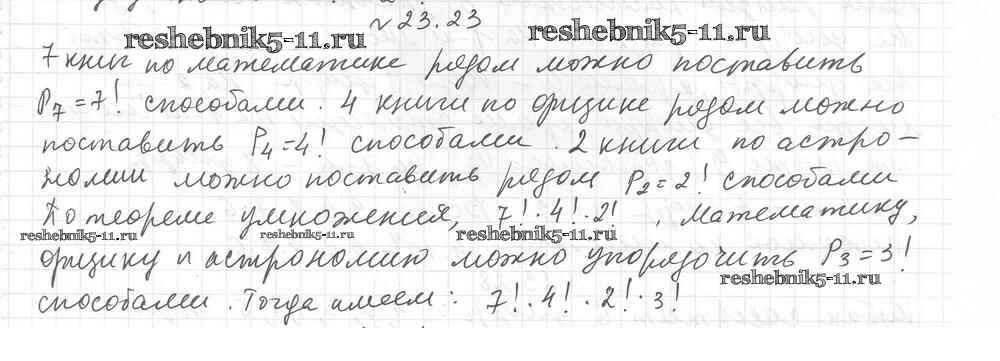 № 23.23
reshebnik5-11.ru reshebnik5-11.ru
7 книг по математике рядом можно поставить
P₇ = 7! способами. 4 книги по физике рядом можно
поставить P₄ = 4! способами. 2 книги по астро-
номии можно поставить рядом P₂ = 2! способами
По теореме умножения, 7! · 4! · 2! , математику,
reshebnik5-11.ru reshebnik5-11.ru reshebnik5-11.ru
физику и астрономию можно упорядочить P₃ = 3!
reshebnik5-11.ru
способами. Тогда имеем: 7! · 4! · 2! · 3!